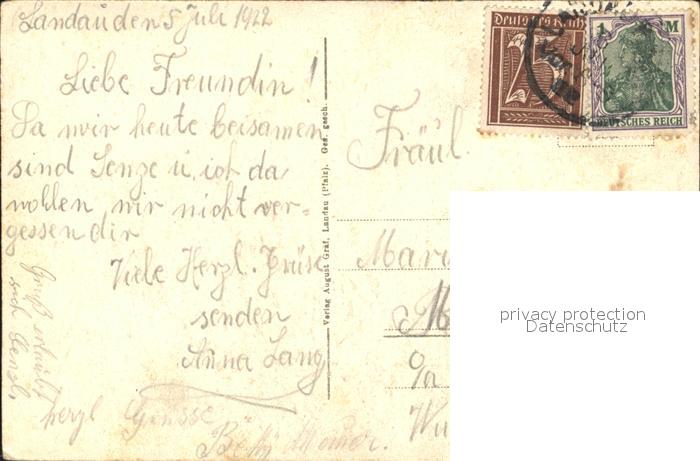 Landau den 5 Juli 1922
Liebe Freundin!
Da wir heute beisamen
sind Senze u. ich da
wollen wir nicht ver=
gessen dir
Viele Herzl. Grüse
senden
Anna Lang
Gruß erlaubt
sich
herzl Grüsse
Betty
Verlag August Graf, Landau (Pfalz). Ges. gesch.
Deutsches Reich
25
1 M
DEUTSCHES REICH
Fräul.
Mari
%
Wu
privacy protection
Datenschutz